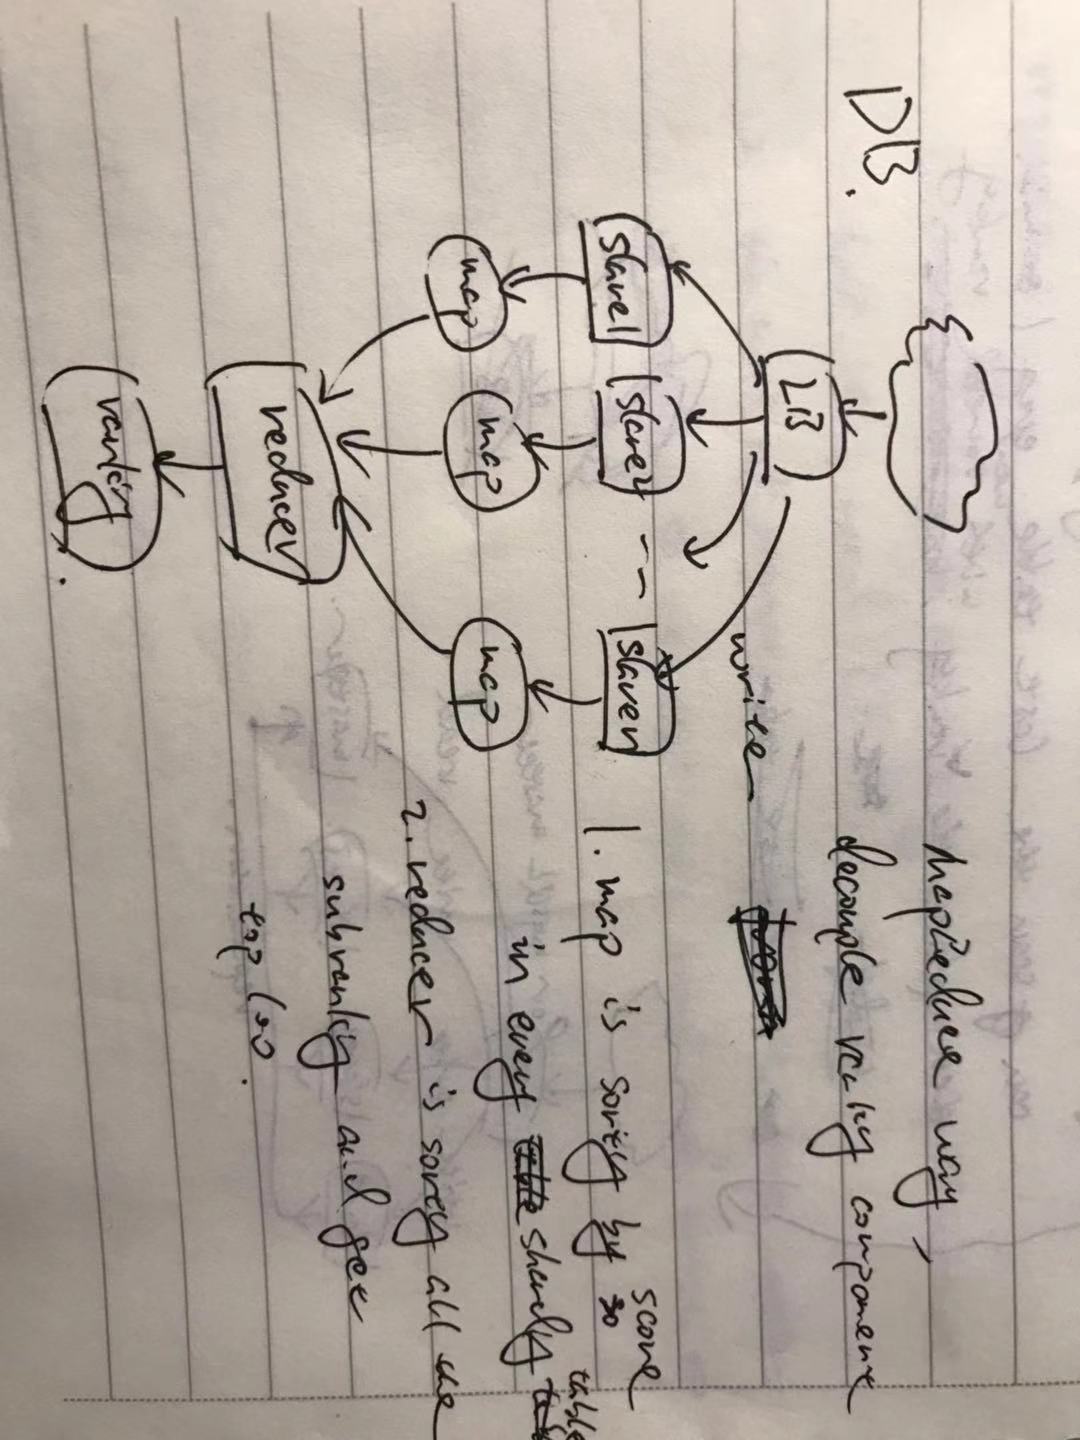 DB.
LB
slave1 slave2 -- slaven
map map map
reducer
ranking.
MapReduce way,
decouple ranking component
write
1. map is sorting by score
in every sharding table
2. reducer is sorting all the
subranking and get
top 100.